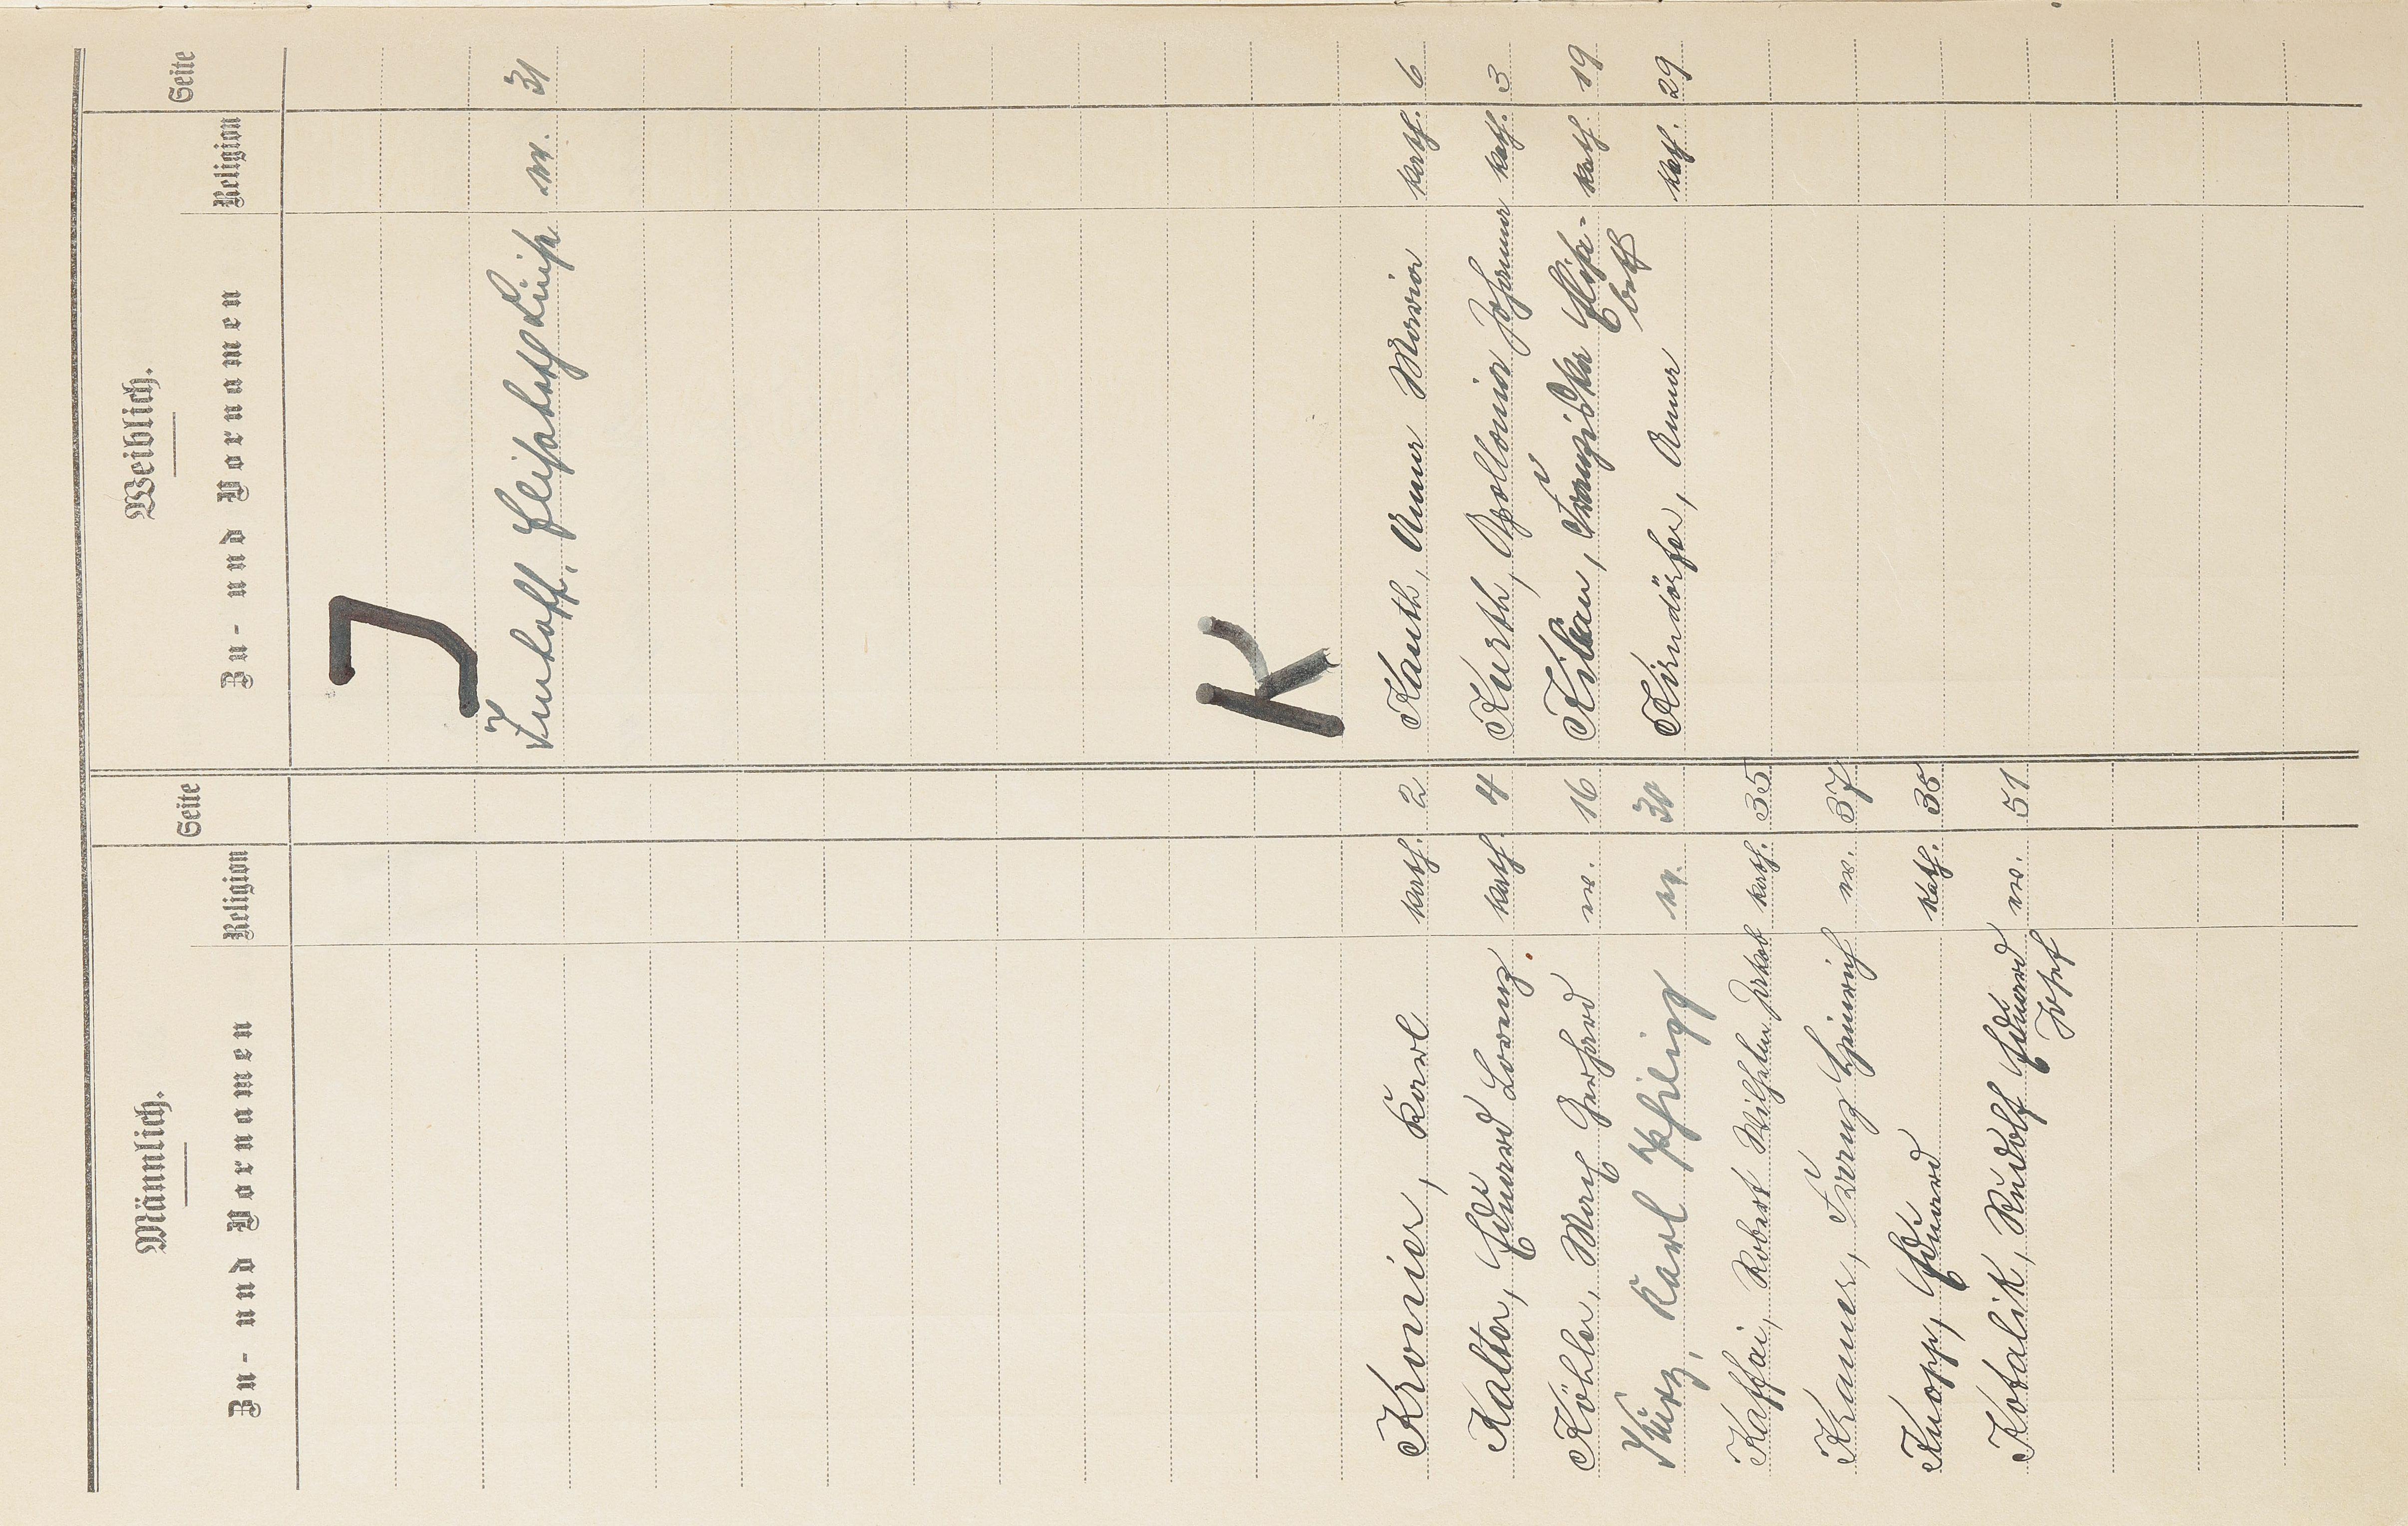 Männlich. Weiblich.
Zu- und Vornamen Religion Seite Zu- und Vornamen Religion Seite
J
Imhoff, Elisabeth Luise ev. 31
K
Kronier, Karl kath. 2 Kauth, Anna Maria kath. 6
Kalter, Eduard Lorenz kath. 4 Kurth, Apollonia Johanna kath. 3
Köhler, Gerhard ev. 16 Kilian, Franziska Elisa- kath. 19
beth
Kurz, Karl Philipp ev. 30 Kirndörfer, Anna kath. 29
Kaffai, Robert Wilhelm Jakob kath. 35
Kramer, Franz Heinrich ev. 37
Knopp, Eduard kath. 38
Kotalik, Rudolf Eduard ev. 51
Josef